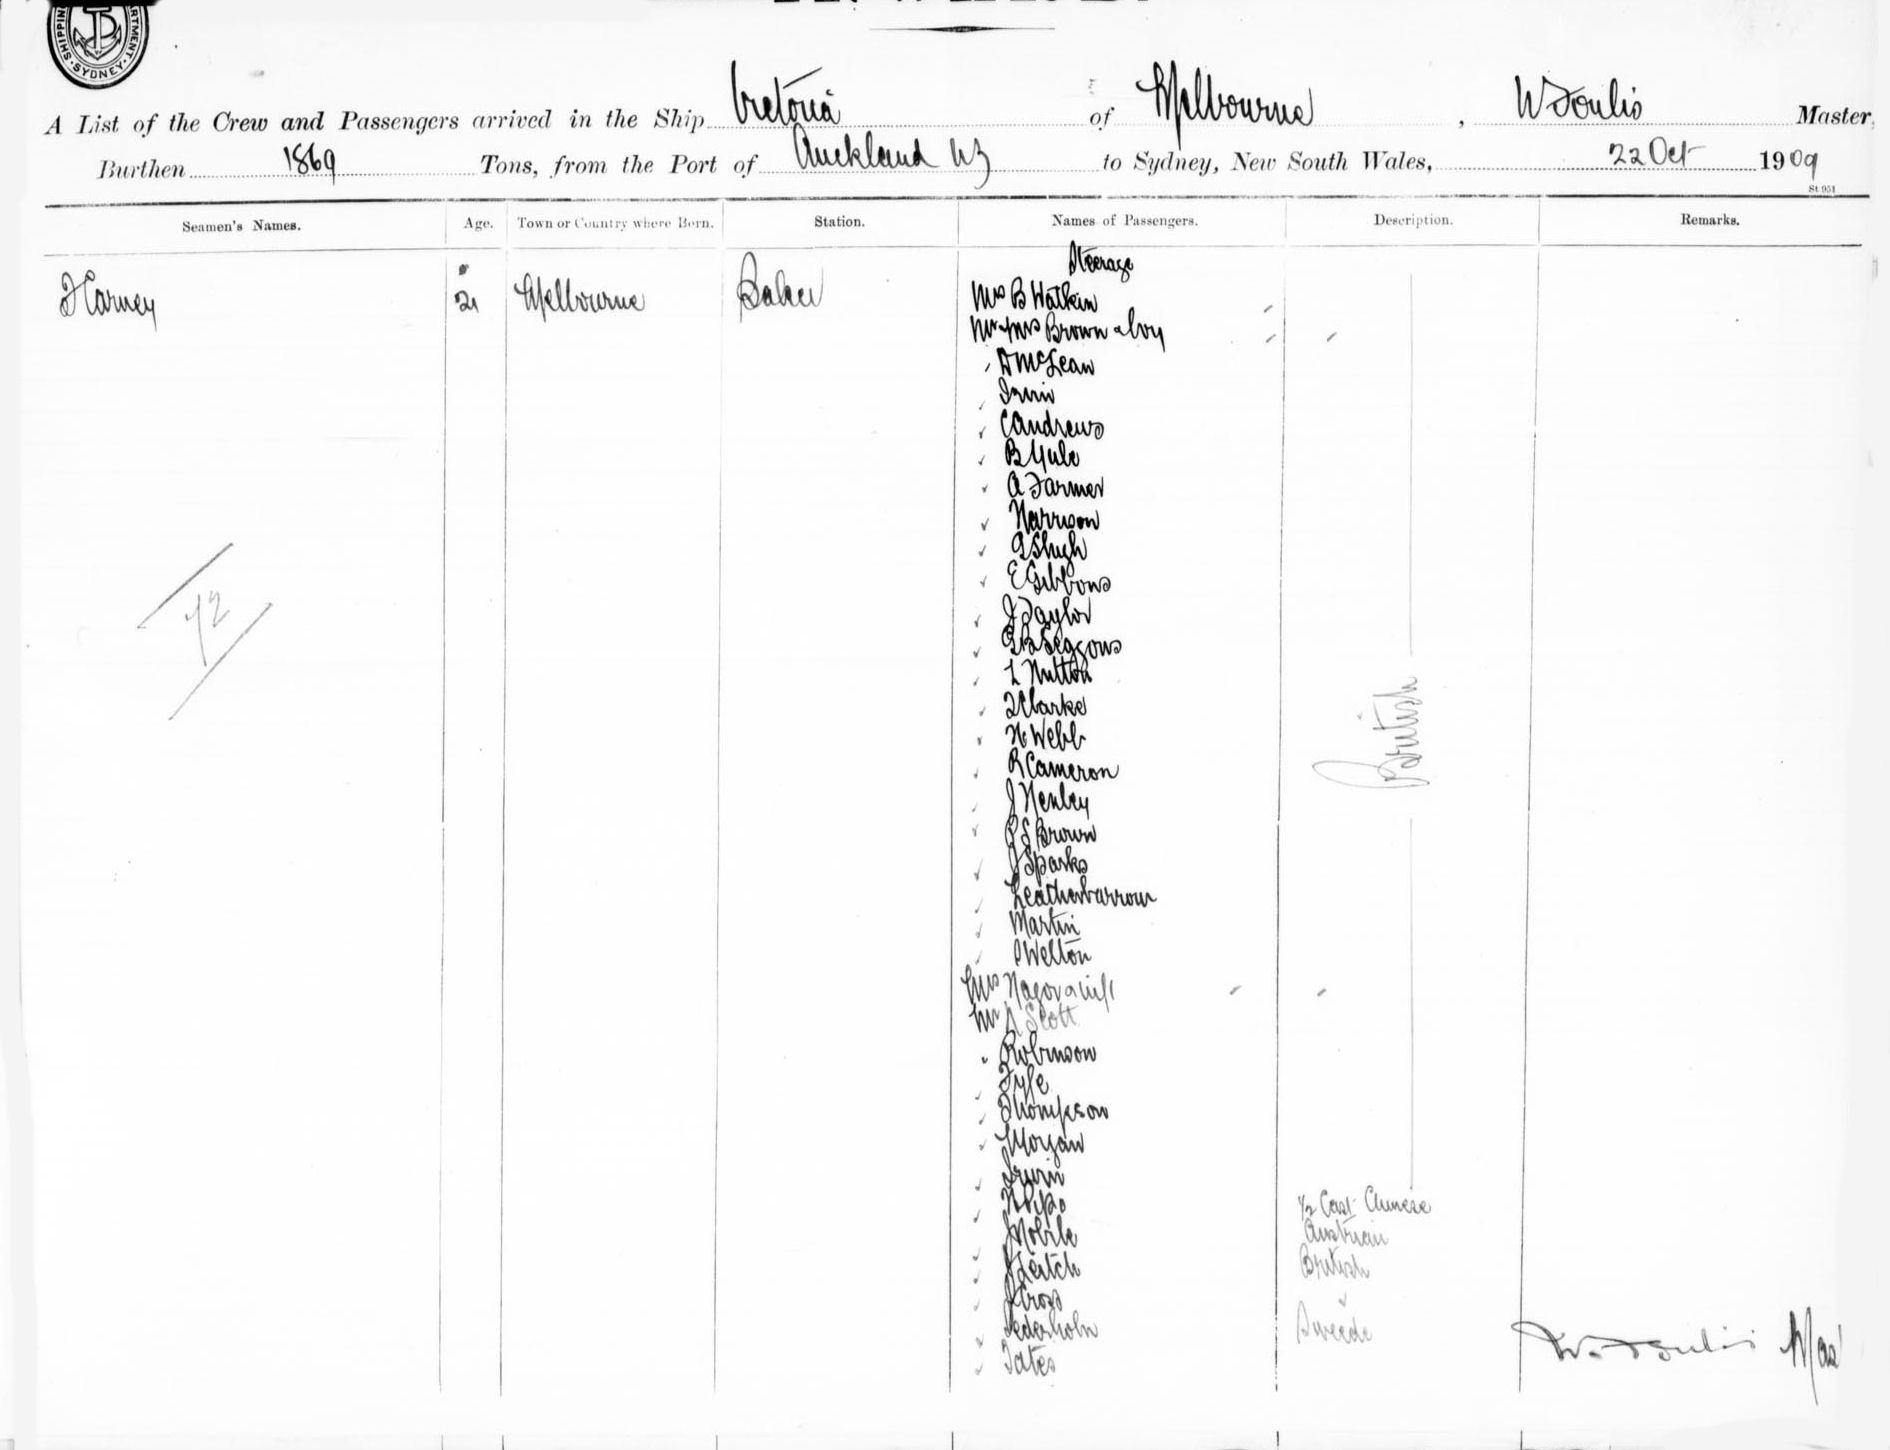 SHIPPING DEPARTMENT SYDNEY
A List of the Crew and Passengers arrived in the Ship Victoria of Melbourne, W Foulis Master,
Burthen 1869 Tons, from the Port of Auckland NZ to Sydney, New South Wales, 22 Oct 1909
St 951
Seamen's Names. Age. Town or Country where Born. Station. Names of Passengers. Description. Remarks.
Steerage
Carney 21 Melbourne Baker Mrs B Watkin
Mr & Mrs Brown & boy
D McLean
Irwin
C Andrews
B Yule
A Farmer
Harrison
E Gibbons
J Taylor
Seggons
L Hutton
Clarke
H Webb
R Cameron
J Henley
Brown
J Sparks
Leatherbarrow
Martin
Welton
Mrs
Mr A Scott
Robinson
Fyfe
Thompson
Morgan
Irwin
1/2 Cast Chinese
J Nobile Austrian
J Leitch British
J Cross
Pederholm Sweede
Tates
British
72
W. Foulis Mas